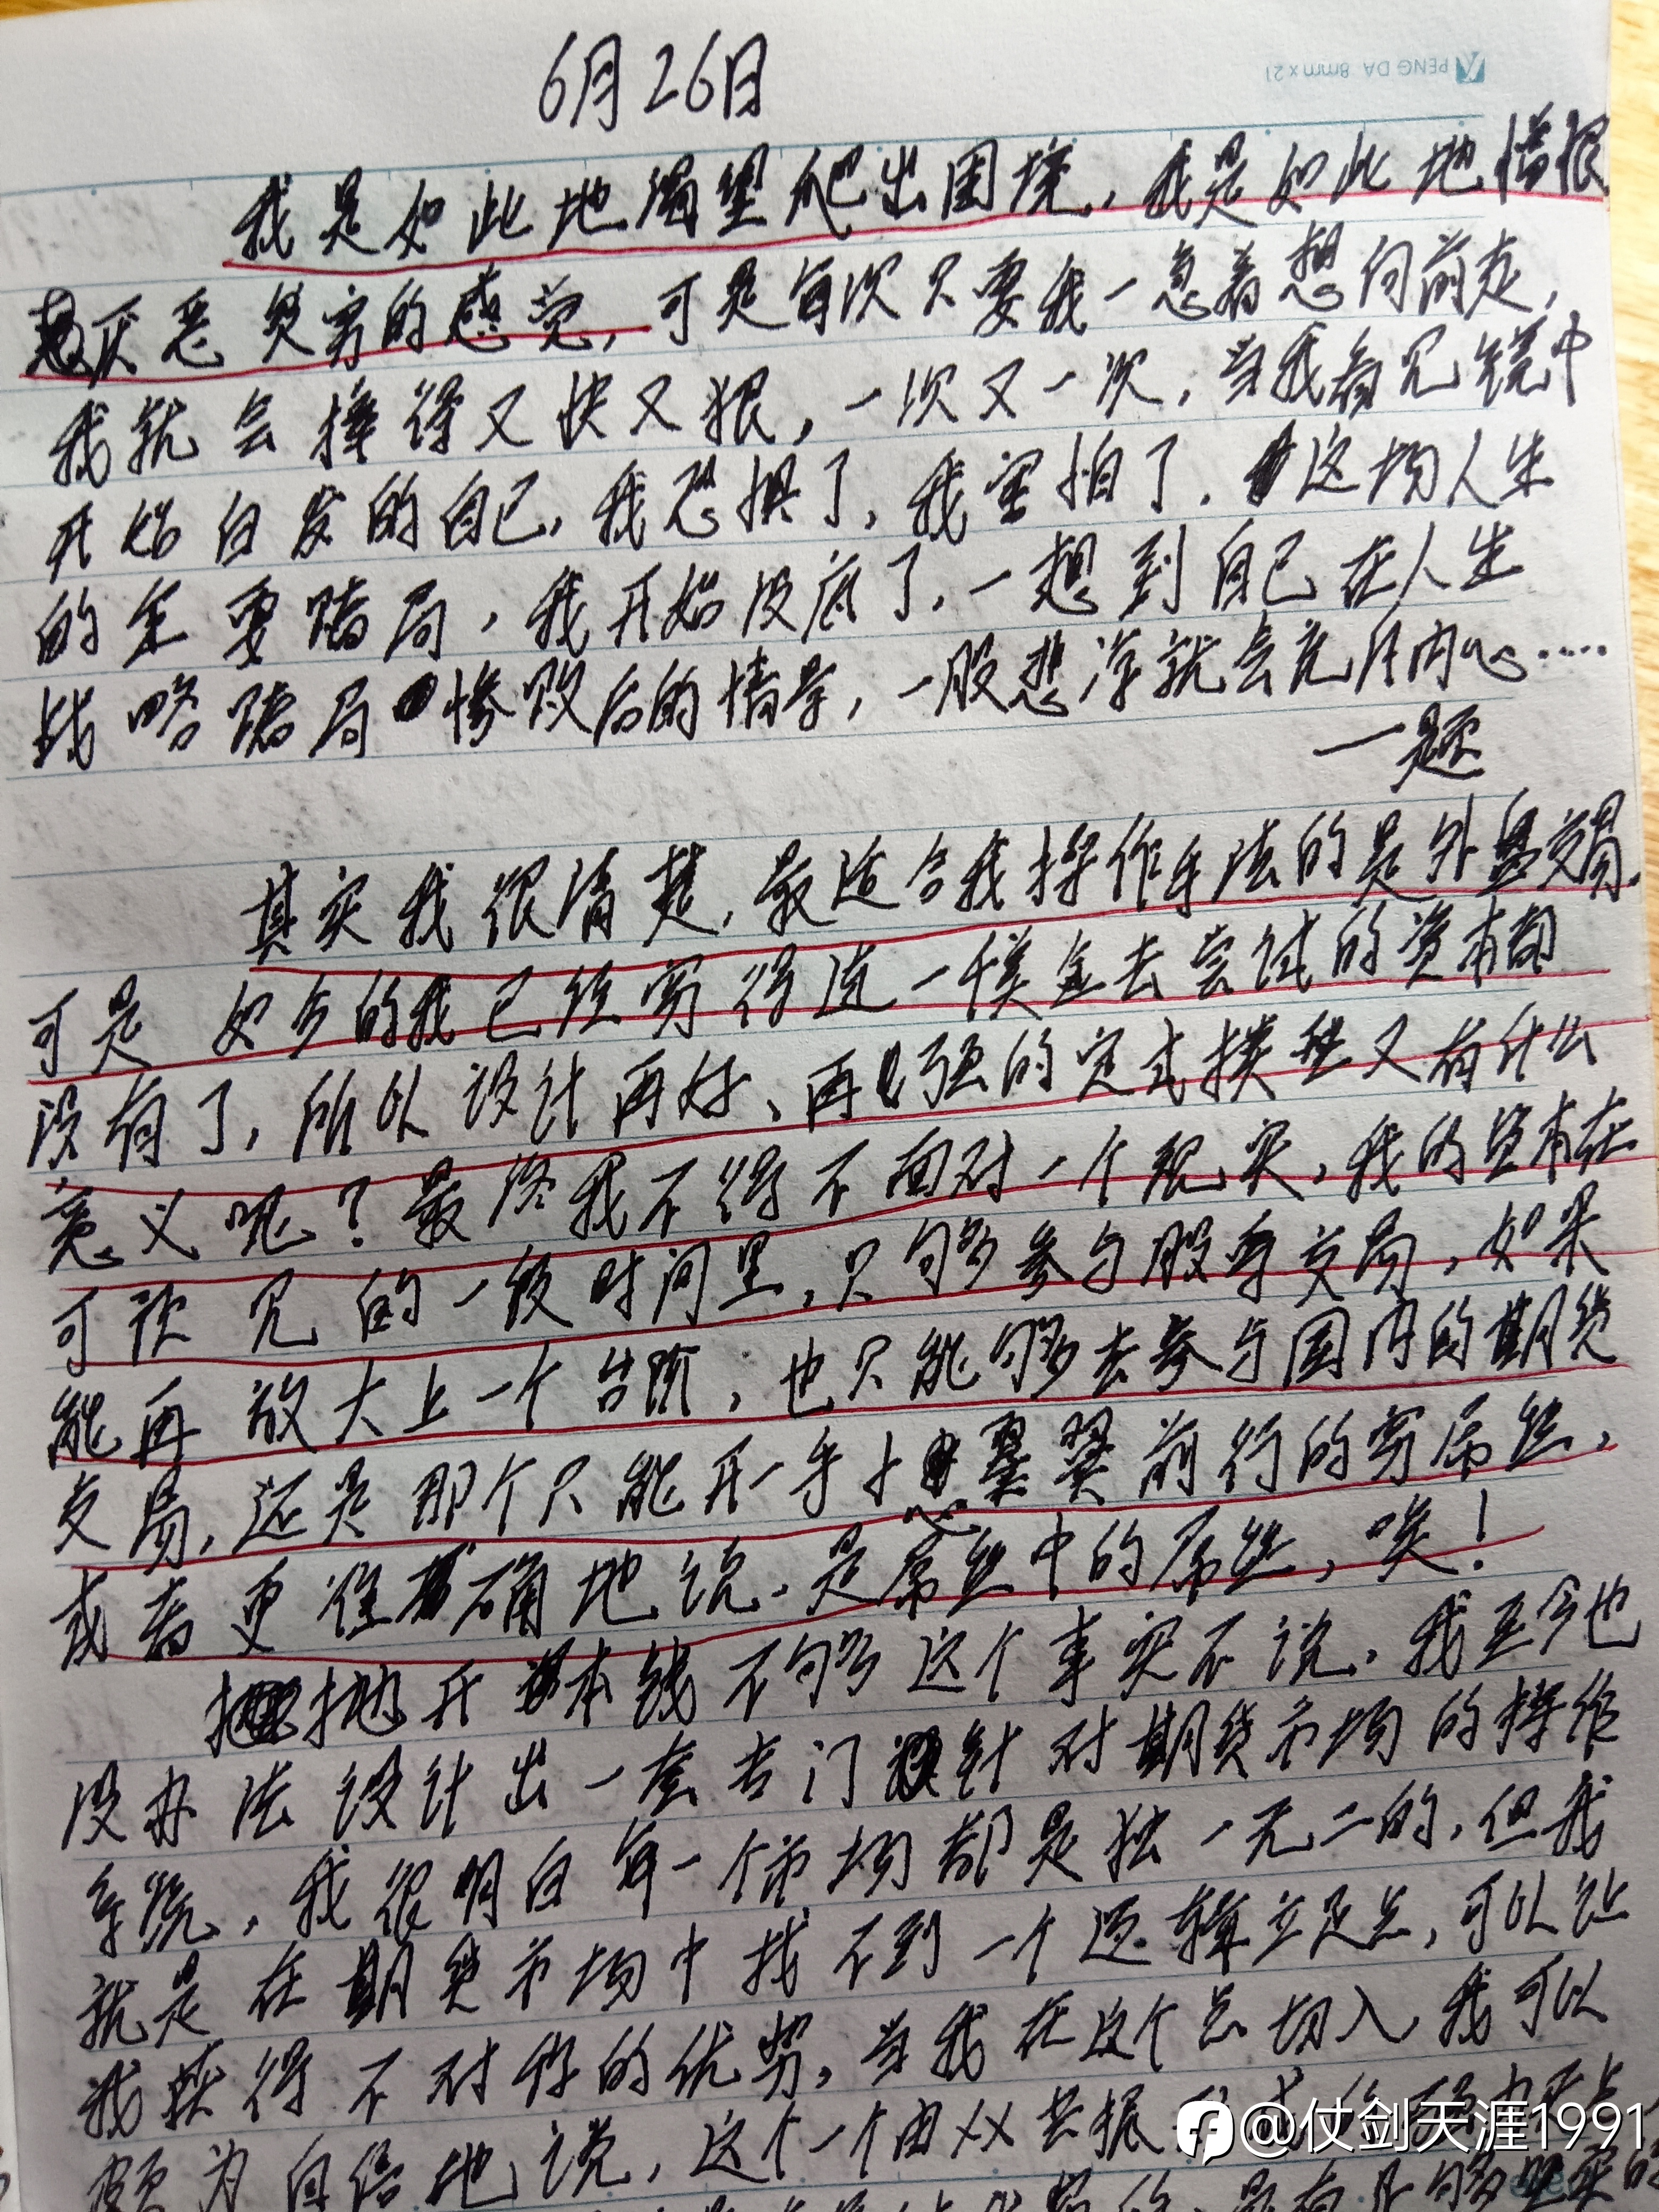 6月26日
PENG DA 8mm×21
我是如此地渴望爬出困境，我是如此地憎恨
厌恶贫穷的感觉，可是每次只要我一急着想向前走，
我就会摔得又快又狠，一次又一次，当我看见镜中
开始白发的自己，我恐惧了，我害怕了，这场人生
的重要赌局，我开始没底了，一想到自己在人生
战略赌局惨败后的情景，一股悲凉就会充斥内心……
一题
其实我很清楚，最适合我操作手法的是外盘交易，
可是如今的我已经穷得连一千美金去尝试的资本都
没有了，所以设计再好、再强的定式模型又有什么
意义呢？最终我不得不面对一个现实，我的资本在
可预见的一段时间里，只够参与股票交易，如果
能再放大上一个台阶，也只能够去参与国内的期货
交易，还是那个只能开一手小心翼翼前行的穷屌丝，
或者更准确地说，是屌丝中的屌丝，唉！
抛开本钱不够这个事实不说，我至今也
没办法设计出一套专门针对期货市场的操作
系统，我很明白每一个市场都是独一无二的，但我
就是在期货市场中找不到一个逻辑立足点，可以让
我获得不对称的优势，当我在这个点切入，我可以
颇为自信地说，这个一个由XX共振
@仗剑天涯1991